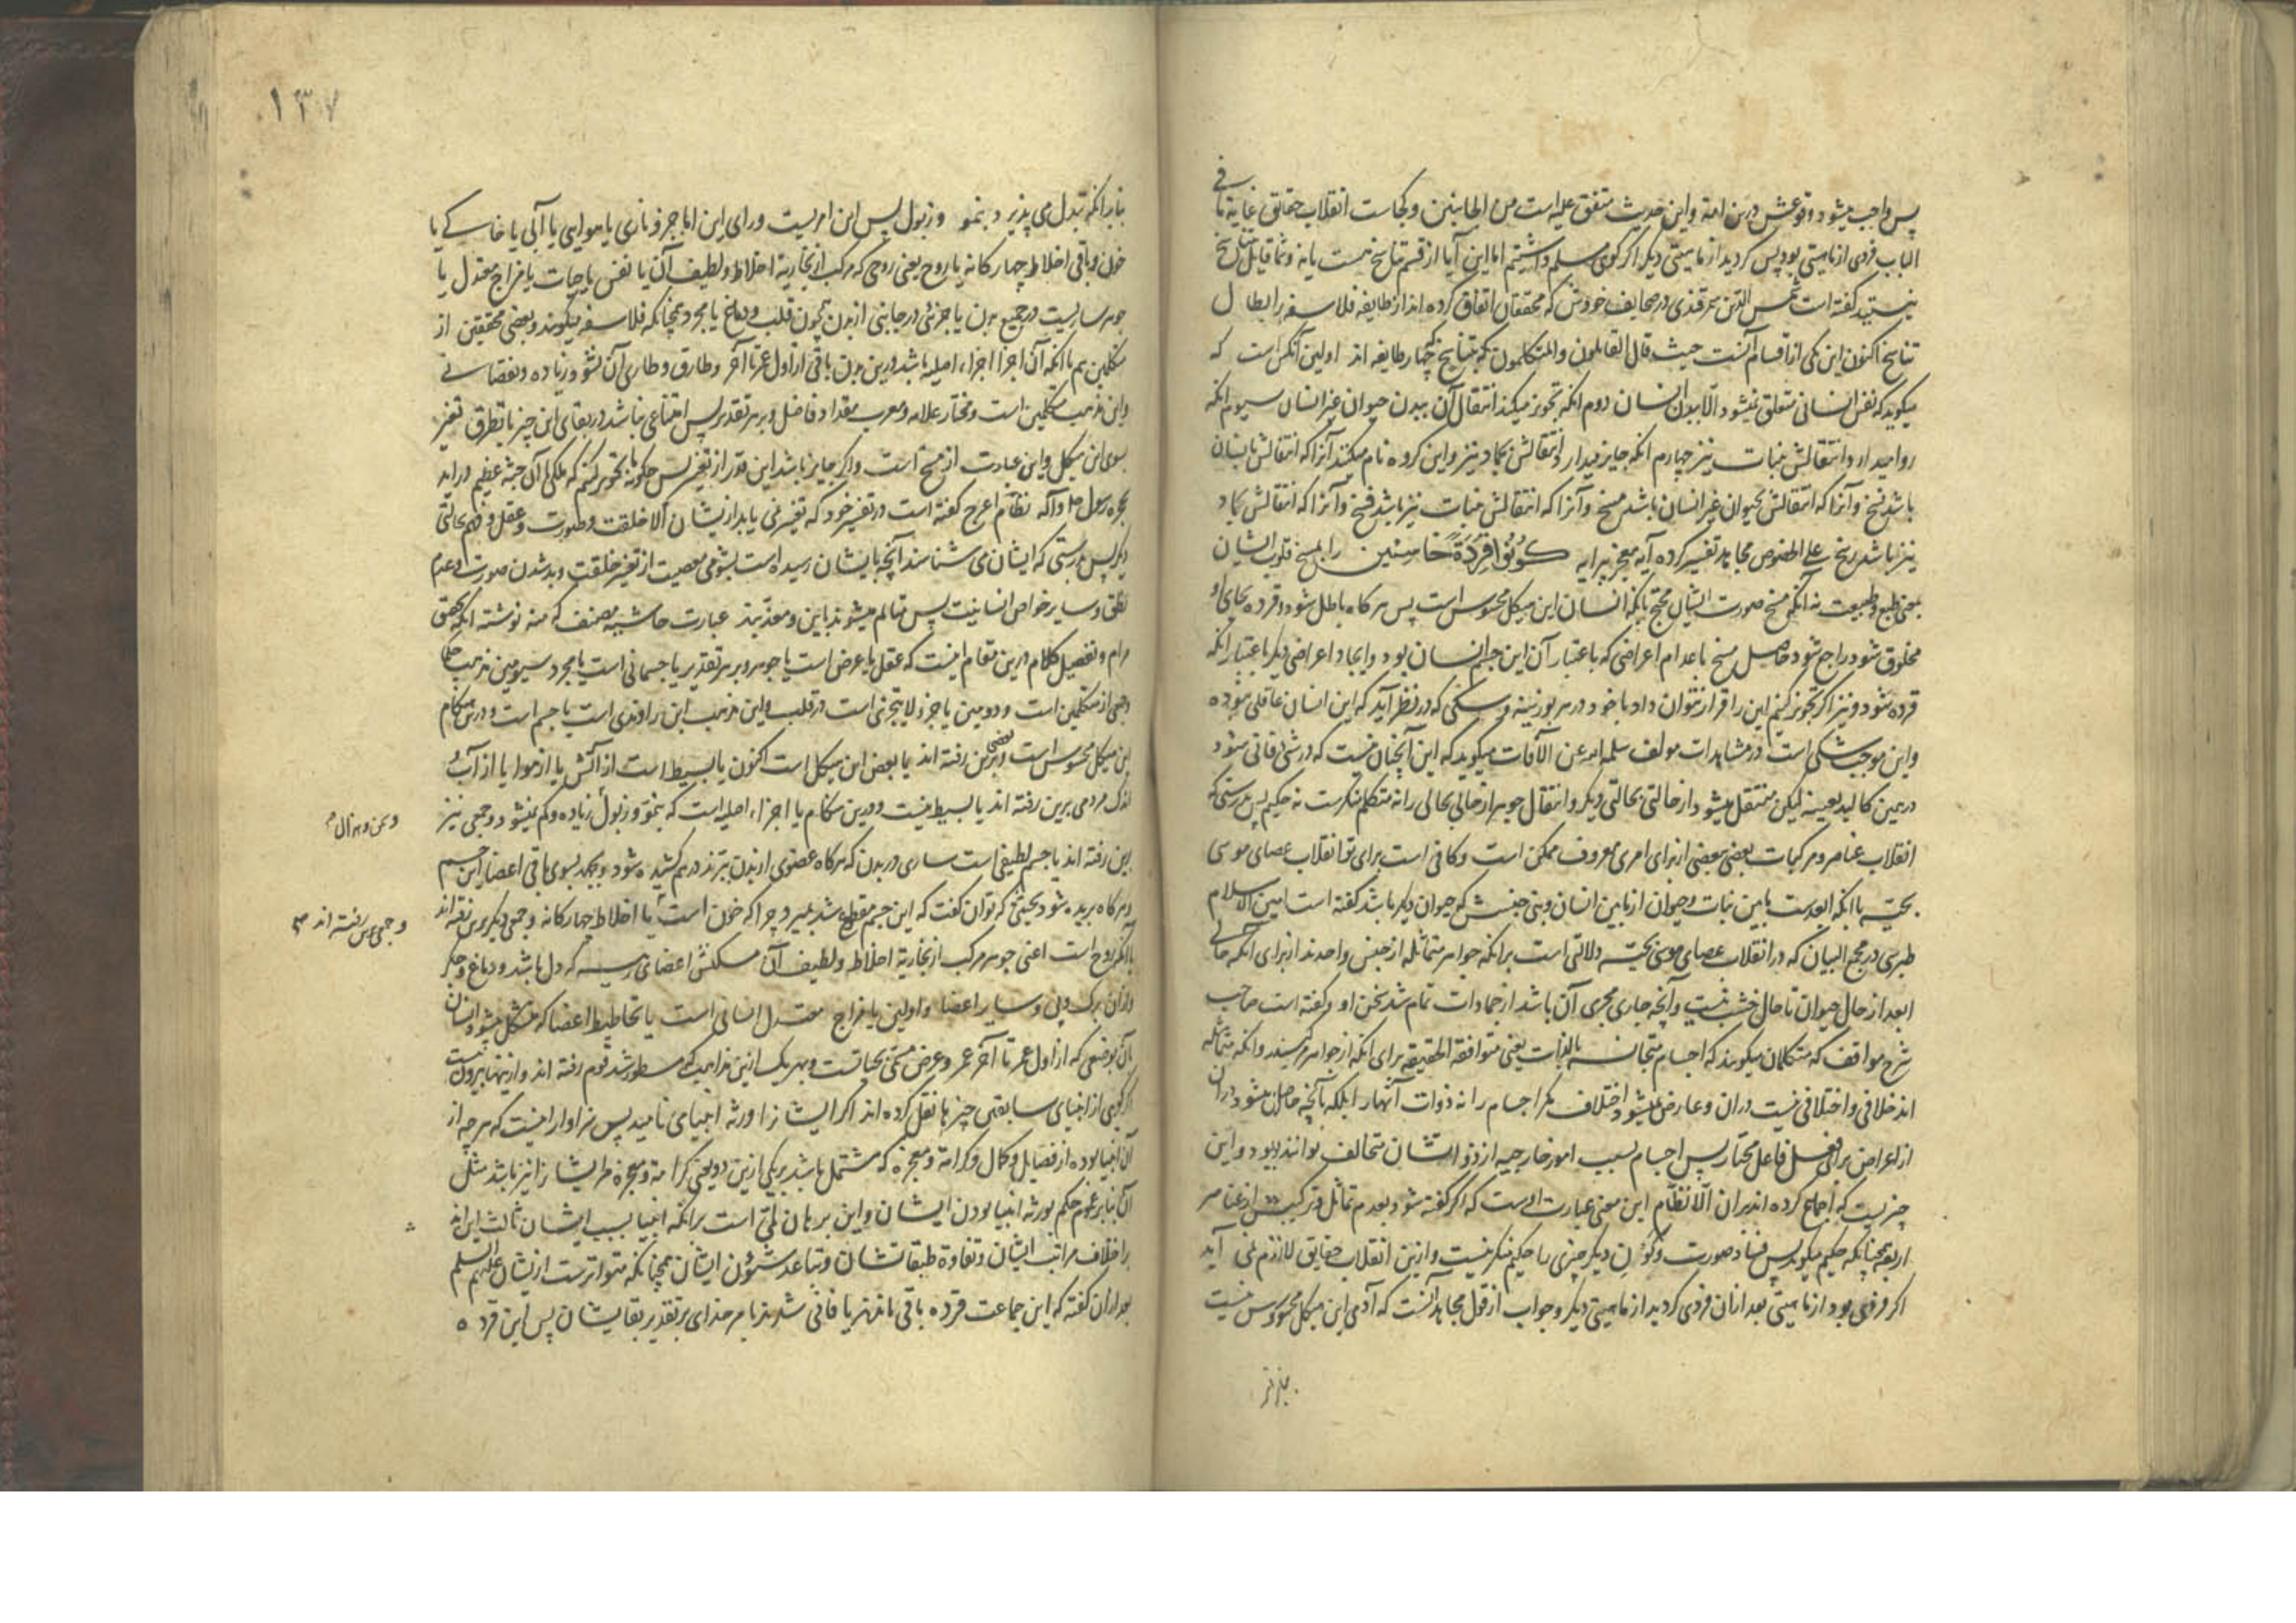 پس واجب میشود وقوعش درین امة واین حدیث متفق علیه است من الجانبین وکجاست انقلاب حقایق غایة ما فی
الباب فردی از ماهیتی بود پس کردید از ماهیتی دیکر اکر کوی مسلم داشتیم اما این آیا از قسم تناسخ هست یا نه وشما قایل بتناسخ
نیستید کفته است شمس الدین سمرقندی در صحایف خودش که محققان اتفاق کرده اند از طایفه فلاسفه بر ابطال
تناسخ اکنون این یکی از اقسام آنست حیث قال القایلون والمتکلمون که بتناسخ چهار طایفه اند اولین آنکس است که
میکوید که نفس انسانی متعلق نمیشود الا ببدن انسان دوم انکه تجویز میکند انتقال آن ببدن حیوان غیر انسان سیوم انکه
روا میدارد انتقالش بنبات نیز چهارم انکه جایز میدارد انتقالش بجماد نیز واین کروه نام میکنند آنرا که انتقالش بانسان
باشد نسخ وآنرا که انتقالش بحیوان غیر انسان باشد مسخ وآنرا که انتقالش بنبات نیز باشد فسخ وآنرا که انتقالش بجماد
نیز باشد رسخ علی الخصوص مجاهد تفسیر کرده آیه معجز پیرایه کُونُوا قِرَدَةً خَاسِئِین را بمسخ قلوب ایشان
بمعنی طبع وطبیعت نه انکه مسخ صورت ایشان محتج بانکه انسان این هیکل محسوس است پس هر کاه باطل شود وقرده بجای او
مخلوق شود راجع شود حاصل مسخ باعدام اعراضی که باعتبار آن این جسم انسان بود وایجاد اعراضی دیکر باعتبار انکه
قرده شود ونیز اکر تجویز کنیم این را قرار نتوان داد با خود در هر بوزینه وسکی که در نظر آید که این انسان عاقلی بوده
واین موجب شکی است در مشاهدات مولف سلمه الله عن الآفات میکوید که این آنچنان نیست که در شی فانی شود
در همین کالبد بعینه لیکن منتقل میشود از حالتی بحالتی دیکر وانتقال جوهر از حالی بحالی را نه متکلم منکر است نه حکیم پس بدرستی که
انقلاب عناصر ومرکبات بعضی ببعضی از برای امری معروف ممکن است وکافی است برای تو انقلاب عصای موسی
بحیّه با انکه ابعد است مابین نبات وحیوان از مابین انسان وبنی جنسش که حیوان دیکر باشد کفته است امین الاسلام
طبرسی در مجمع البیان که در انقلاب عصای موسی بحیّه دلالتی است برانکه جواهر متماثله از جنس واحدند از برای انکه حالی
ابعد از حال حیوان تا حال خشب نیست وآنچه جاری مجری آن باشد از جمادات تمام شد سخن او وکفته است صاحب
شرح مواقف که متکلمان میکویند که اجسام متجانسه بالذات یعنی متوافقة الحقیقه برای انکه از جواهر مرکبند وانکه متماثله
اند خلافی واختلافی نیست دران وعارض میشود اختلاف مکر اجسام را نه ذوات آنهارا بلکه بآنچه حاصل میشود دران
از اعراض برای فعل فاعل مختار پس اجسام بسبب امور خارجیه از ذوات شان متخالف توانند بود واین
چیزیست که اجماع کرده اند بران الّا نظّام این معنی عبارت اوست که اکر کفته شود بعدم تماثل وترکیبش از عناصر
اربعه چنانکه حکیم میکوید پس فساد صورت وکَون دیکر چیزی را حکیم منکر نیست وازین انقلاب حقایق لازم نمی آید
اکر فردی بود از ماهیتی بعد ازان فردی کردید از ماهیتی دیکر وجواب از قول مجاهد آنست که آدمی این هیکل محسوس نیست
١٣٧
بنابر انکه تبدل می پذیرد بنمو وزبول پس این امریست ورای این اما جزو ناری یا هوایی یا آبی یا خاکی یا
خون وباقی اخلاط چهار کانه یا روح یعنی روحی که مرکب از بخاریة اخلاط ولطیف آن یا نفس یا حیات یا مزاج معتدل یا
جوهر ساریست در جمیع بدن یا جزئی در جانبی از بدن چون قلب ودماغ یا مجرد چنانکه فلاسفه میکویند وبعضی محققین از
متکلمین هم با انکه آن اجزا اجزاء اصلیه باشد درین بدن باقی از اول عمر تا آخر وطارق وطاری آن نشود زیاده ونقصانی
واین مذهب متکلمین است ومختار علامه ومعرب مقداد فاضل وبر هر تقدیر پس امتناعی نباشد در بقای این چیز با تطرق تغیر
بسوی این هیکل واین عبارت از مسخ است واکر جایز نباشد این قدر از تغیر پس چکونه تجویز کنیم که ملکی با آن جثه عظیم دراید
بحجره رسول وآکه نظّام اعرج کفته است در تفسیر خود که تغیر نمی یابد از یشان الا خلقت وصورت وعقل وفهم بحالتی
دیکر پس بدرستی که ایشان می شناسند آنچه بایشان رسیده است بشومی معصیت از تغیر خلقت وبد شدن صورت وعدم
نطق وسایر خواص انسانیت پس متالم میشوند باین ومعذّبند عبارت حاشیه مصنف که منه نوشته انکه تحقیق
مرام وتفصیل کلام درین مقام اینست که عقل یا عرض است یا جوهر وبر هر تقدیر یا جسمانی است یا مجرد سیومین مذهب حکما
وجمعی از متکلمین است ودومین یا جزء لا یتجزی است در قلب واین مذهب ابن راوندی است یا جسم است ودرین هنکام
این هیکل محسوس است وبعضی برین رفته اند یا بعض این هیکل است اکنون یا بسیط است از آتش یا از هوا یا از آب و
اندک مردمی برین رفته اند یا بسیط نیست ودرین هنکام یا اجزاء اصلیه است که بنمو وزبول زیاده وکم نمیشود وجمعی نیز
وسمن وهزال
برین رفته اند یا جسم لطیفی است ساری در بدن که هر کاه عضوی از بدن ببُرند درهم کشیده شود وبجهد بسوی باقی اعضا این جسم
وهر کاه بریده شود بحیثی که توان کفت که این جسم مقطوع شد بمیرد چرا که خون است یا اخلاط چهار کانه وجمعی دیکر برین رفته اند
وجمعی برین رفته اند
یا انکه روح است اعنی جوهر مرکب از بخاریة اخلاط ولطیف آن مسکنش اعضای رئیسه که دل باشد ودماغ وجکر
وسایر اعضا واولین یا مزاج معتدل انسانی است یا تخاطیط اعضا که متشکل میشود انسان
بآن بوضعی که از اول عمر تا آخر عمر وعرض مسمّی بحیاتست وبهر یک ازین مذاهب که مسطور شد قوم رفته اند واز ینها بیرون نیست
اکر کوی از انبیای سابقین چیزها نقل کرده اند اکر ایشانرا ورثه انبیا می نامید پس سزاوار اینست که هر چه از
آن انبیا بوده از فضایل وکمال وکرامة ومعجزه که مشتمل باشد بر یکی ازین دو یعنی کرامة ومعجزه مر ایشانرا نیز باشد مثل
آن بنابر عموم حکم بورثه انبیا بودن ایشان واین برهان لمّی است برانکه انبیا بسبب ایشان ثالث این اند
را خلاف مراتب ایشان وتفاوة طبقات شان وتباعد شئون ایشان همچنانکه متواترست از یشان علیهم السلم
بعد ازان کفته که این جماعت قرده باقی ماندند یا فانی شدند بامر خدای بر تقدیر بقا یشان پس این قرده